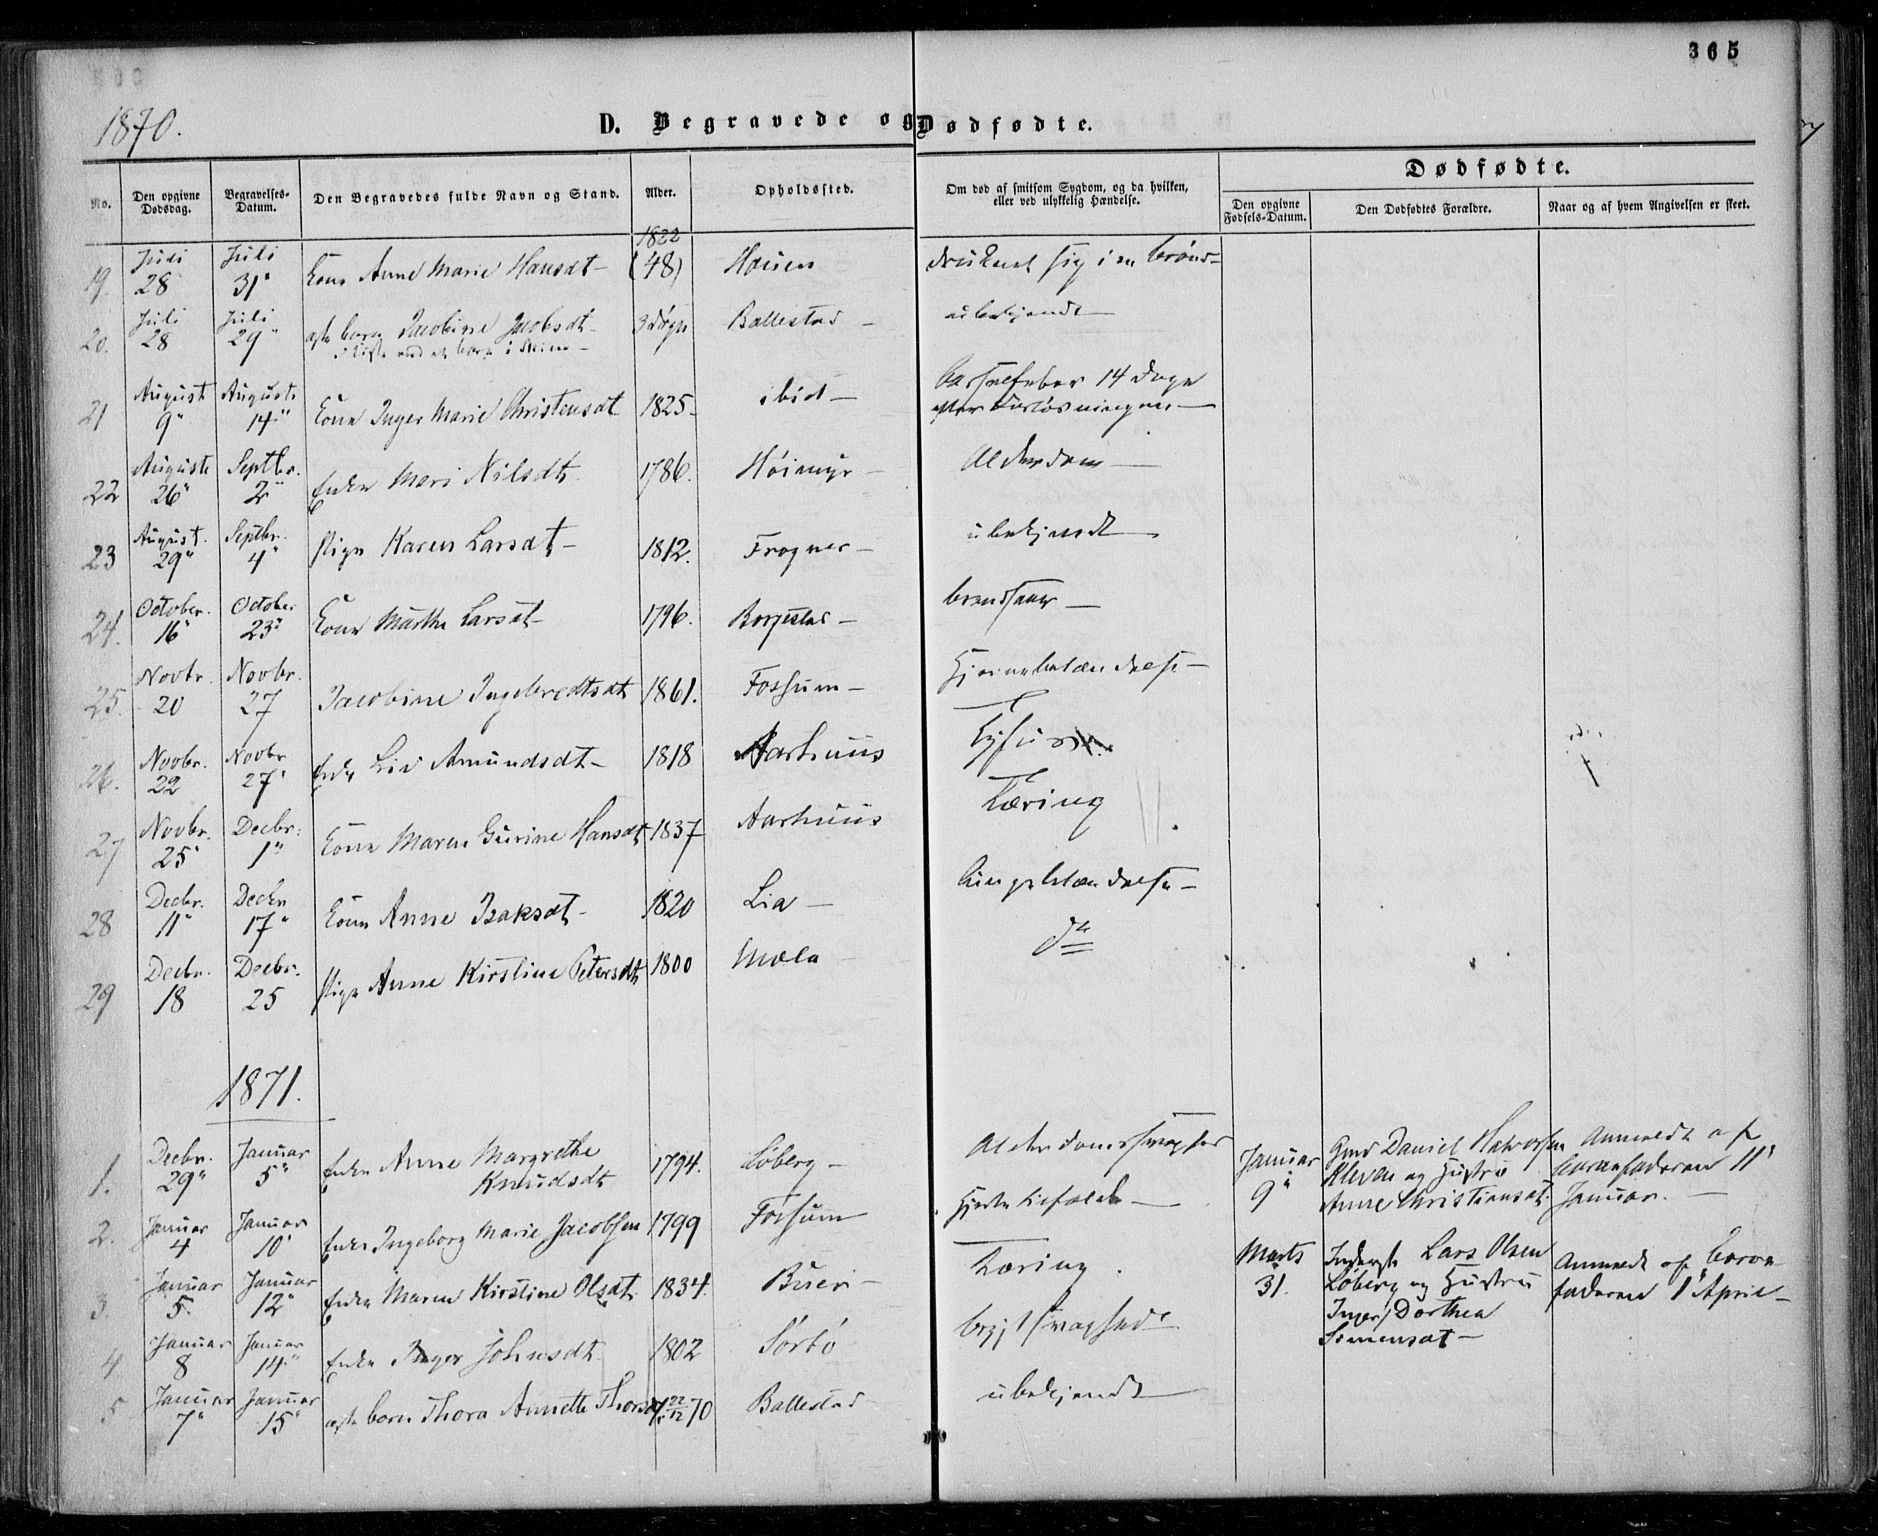 365
1870.
D. Begravede og Dødfødte.
No.
Den opgivne Dødsdag.
Begravelses-Datum.
Den Begravedes fulde Navn og Stand.
Alder.
Opholdssted.
Om død af smitsom Sygdom, og da hvilken, eller ved ulykkelig Hændelse.
Dødfødte.
Den opgivne Fødsels-Datum.
Den Dødfødtes Forældre.
Naar og af hvem Angivelsen er skeet.
19. Juli 28 Juli 31" Kone Anne Marie Hansdt 1822 (48) Hauen druknet sig i en Brønd
20. Juli 28 Juli 29" ægte barn Jacobine Jacobsdt 3 døgn Ballestad ubekjendt
21 August 9" August 14" Kone Inger Marie Christensdt 1825 ibid Barselfeber 14 Dage
efter Forløsningen
22 August 26" Septbr. 2" Enken Mari Nilsdt 1786. Høimyr Alderdom
23 August. 29" Septbr. 4" Pige Karen Larsdt 1812. Frogner ubekjendt
24. October. 16" October 23" Kone Marthe Larsdt 1796. Borgestad
25. Novbr. 20 Novbr. 27 Jacobine Ingebredtsdt 1861. Fossum Hjernebetændelse
26. Novbr. 22 Novbr. 27" Enke Liv Amundsdt 1818 Aarhuus
27 Novbr. 25" Decbr. 1" Kone Maren Gurine Hansdt 1837 Aarhuus Tæring
28 Decbr. 11" Decbr. 17" Kone Anne Isaksdt 1820 Lia Lungebetændelse
29 Decbr. 18 Decbr. 25 Pige Anne Kirstine Petersdt 1800 Mæla do
1871.
1. Decbr. 29" Januar 5" Enken Anne Margrethe
Knudsdt 1794. Løberg Alderdomssvaghed
Januar 9" Gmd Daniel Halvorsen
Kleven og Hustru
Anne Christiansdt
Anmeldt af
Barnefaderen 11"
Januar.
2. Januar 4 Januar 10" Enke Ingeborg Marie Jacobsen 1799 Fossum
3. Januar 5. Januar 12" Enken Maren Kirstine Olsdt 1834. Buer Tæring.
Marts 31. Inderst Lars Olsen
Løberg og Hustru
Inger Dorthea
Simensdt
Anmeldt af Barne-
faderen 1" April
4 Januar 8 Januar 14" Enken Inger Johnsdt 1802 Sørbø Brystsvaghed
5 Januar 7" Januar 15" ægte barn Thora Annette Thorsdt 22/12 70 Ballestad ubekjendt